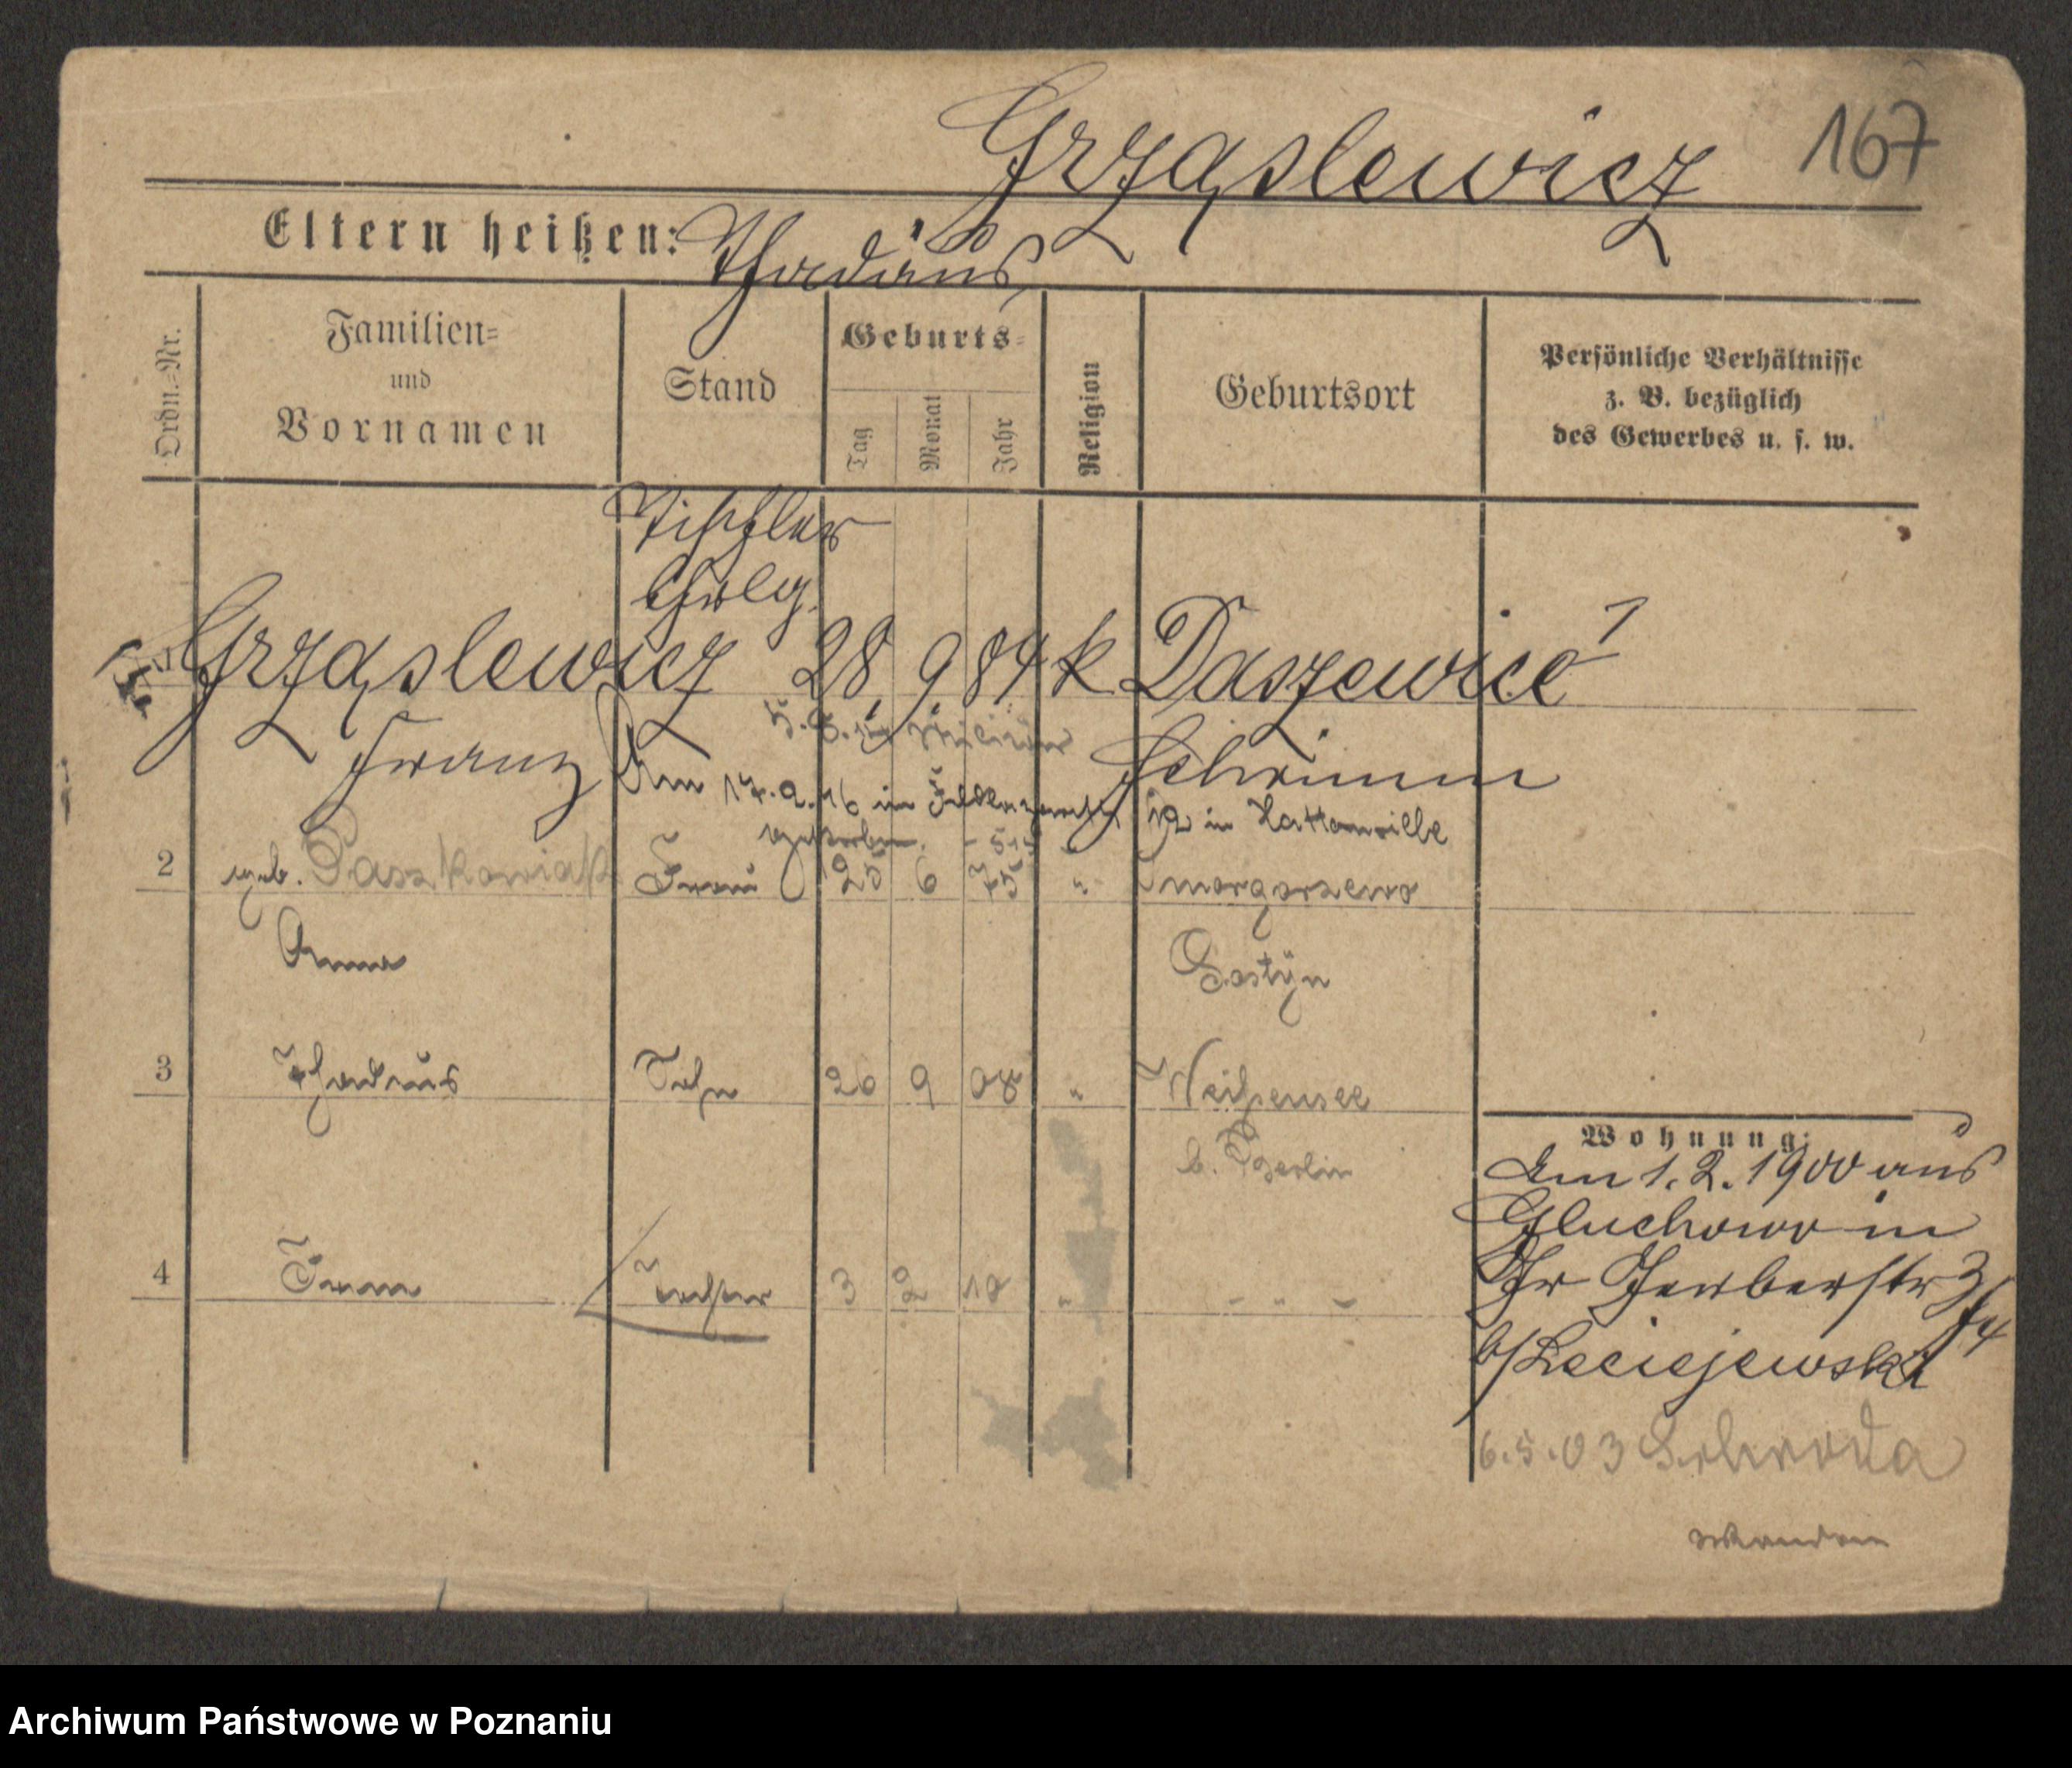 Grząslewicz 167
Eltern heißen: Thadäus
Ordn.=Nr.
Familien=
und
Vornamen
Stand
Geburts=
Tag
Monat
Jahr
Religion
Geburtsort
Persönliche Verhältnisse
z. B. bezüglich
des Gewerbes u. s. w.
Tischler
Grząslewicz 28 9 84 k Daszewice
Franz Schrimm
5.8.14 Militär
Am 17.9.16 im Feldlazarett 12 in Hattonville
gestorben.
2 geb. Paszkowiak Frau 25 6 75 "
Anna Gostÿn
3 Thadäus Sohn 26 9 08 " Weißensee
b. Berlin
4 Irma Tochter 3 2 10 " - " -
Wohnung:
Am 1.2.1900 aus
Gluchowo in
Gerberstr 3/4
b/Leciejewski
6.5.03 Schroda
Archiwum Państwowe w Poznaniu